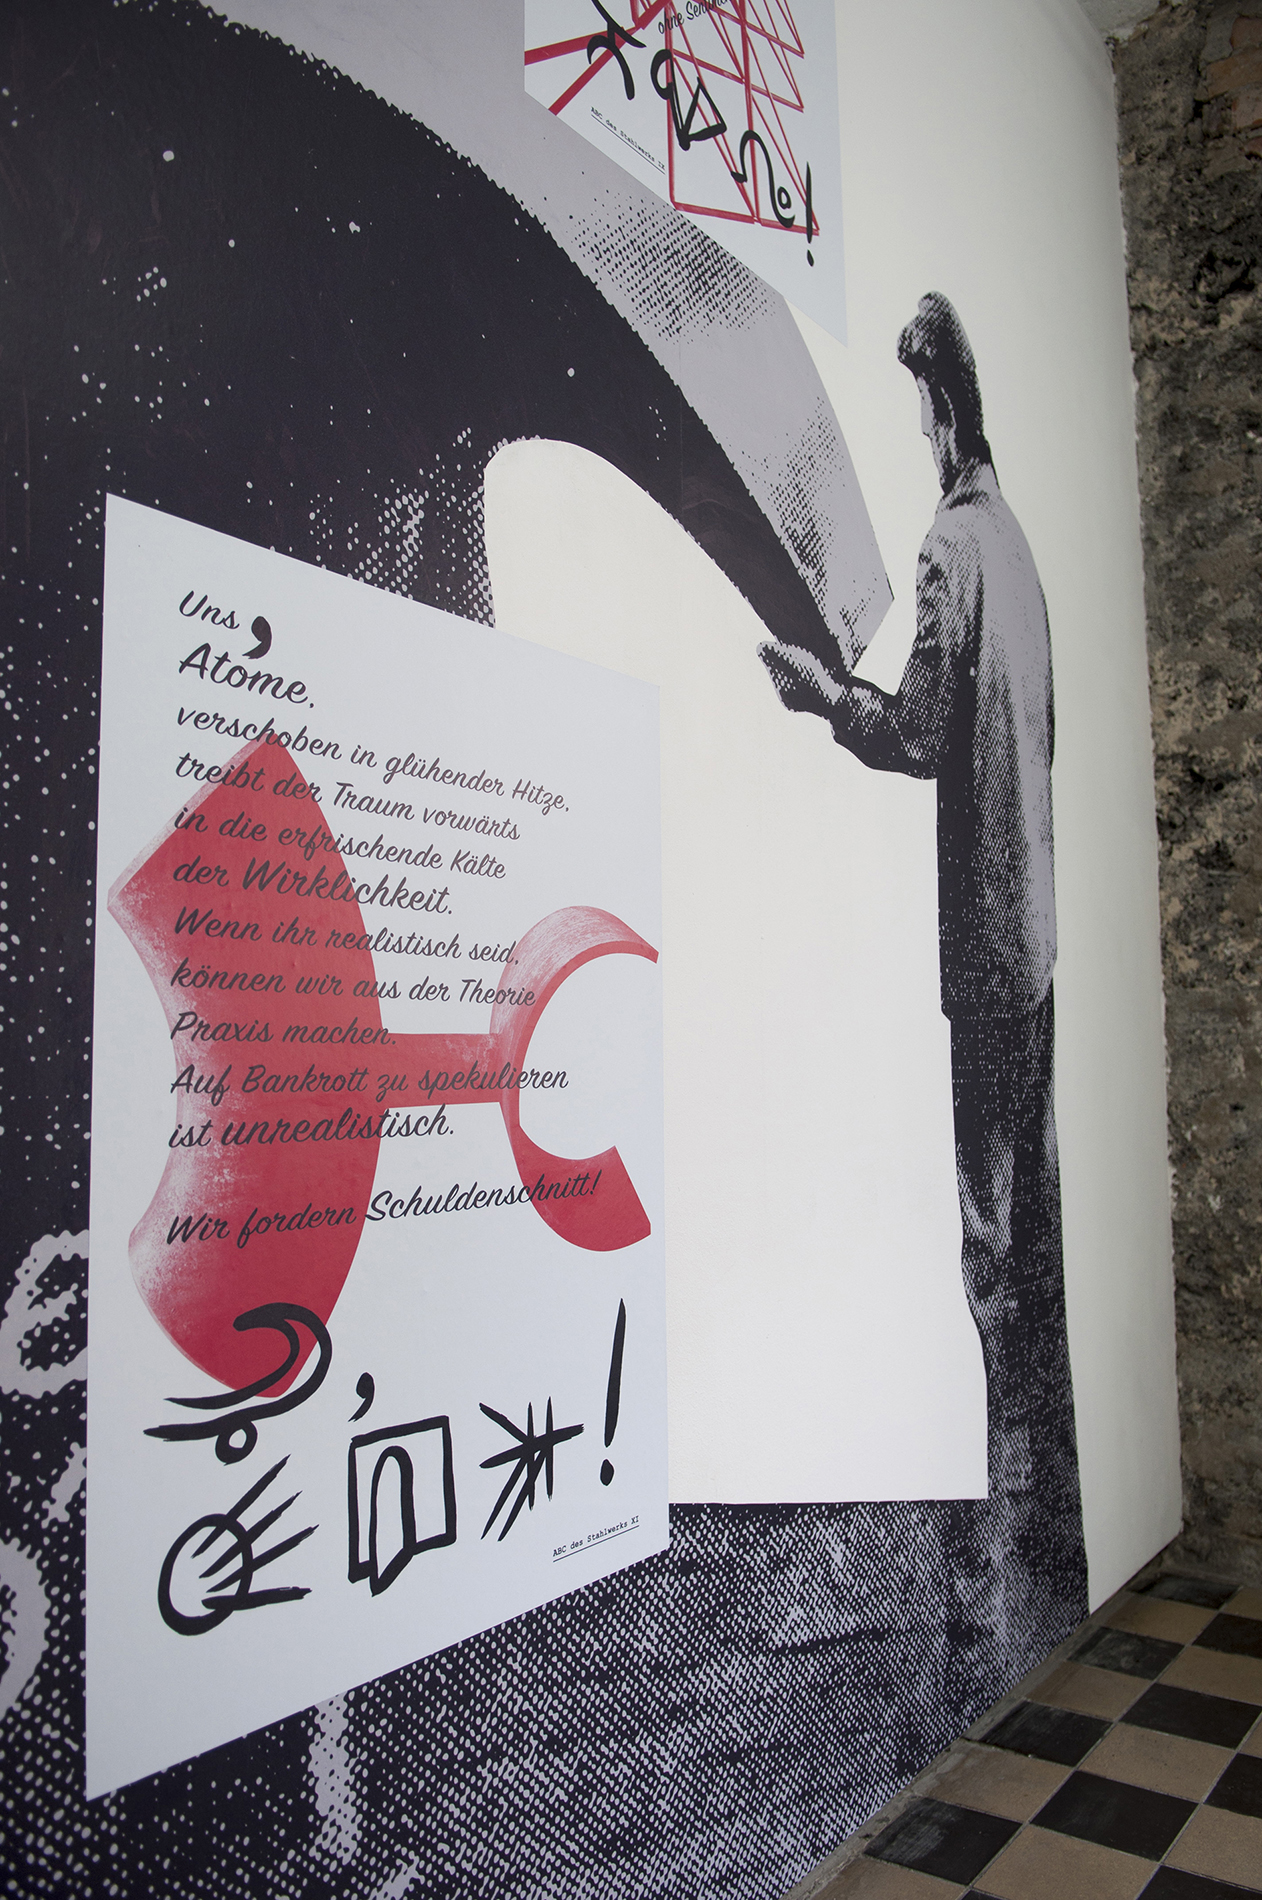 ohne
ABC des Stahlwerks IX
Uns,
Atome.
verschoben in glühender Hitze,
treibt der Traum vorwärts
in die erfrischende Kälte
der Wirklichkeit.
Wenn ihr realistisch seid,
können wir aus der Theorie
Praxis machen.
Auf Bankrott zu spekulieren
ist unrealistisch.
Wir fordern Schuldenschnitt!
ABC des Stahlwerks XI